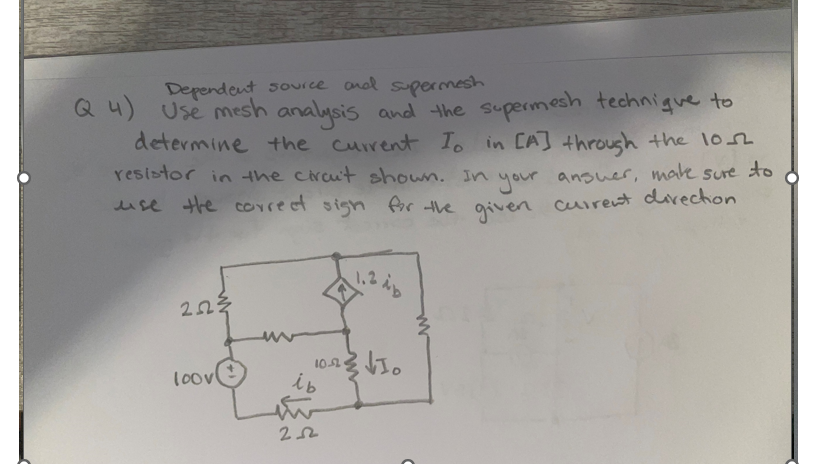 Dependent source and supermesh
Q 4) Use mesh analysis and the supermesh technique to
determine the current I₀ in [A] through the 10Ω
resistor in the circuit shown. In your answer, make sure to
use the correct sign for the given current direction
1.2 i_b
2Ω
10Ω ↓I₀
100V
+
-
i_b
2Ω